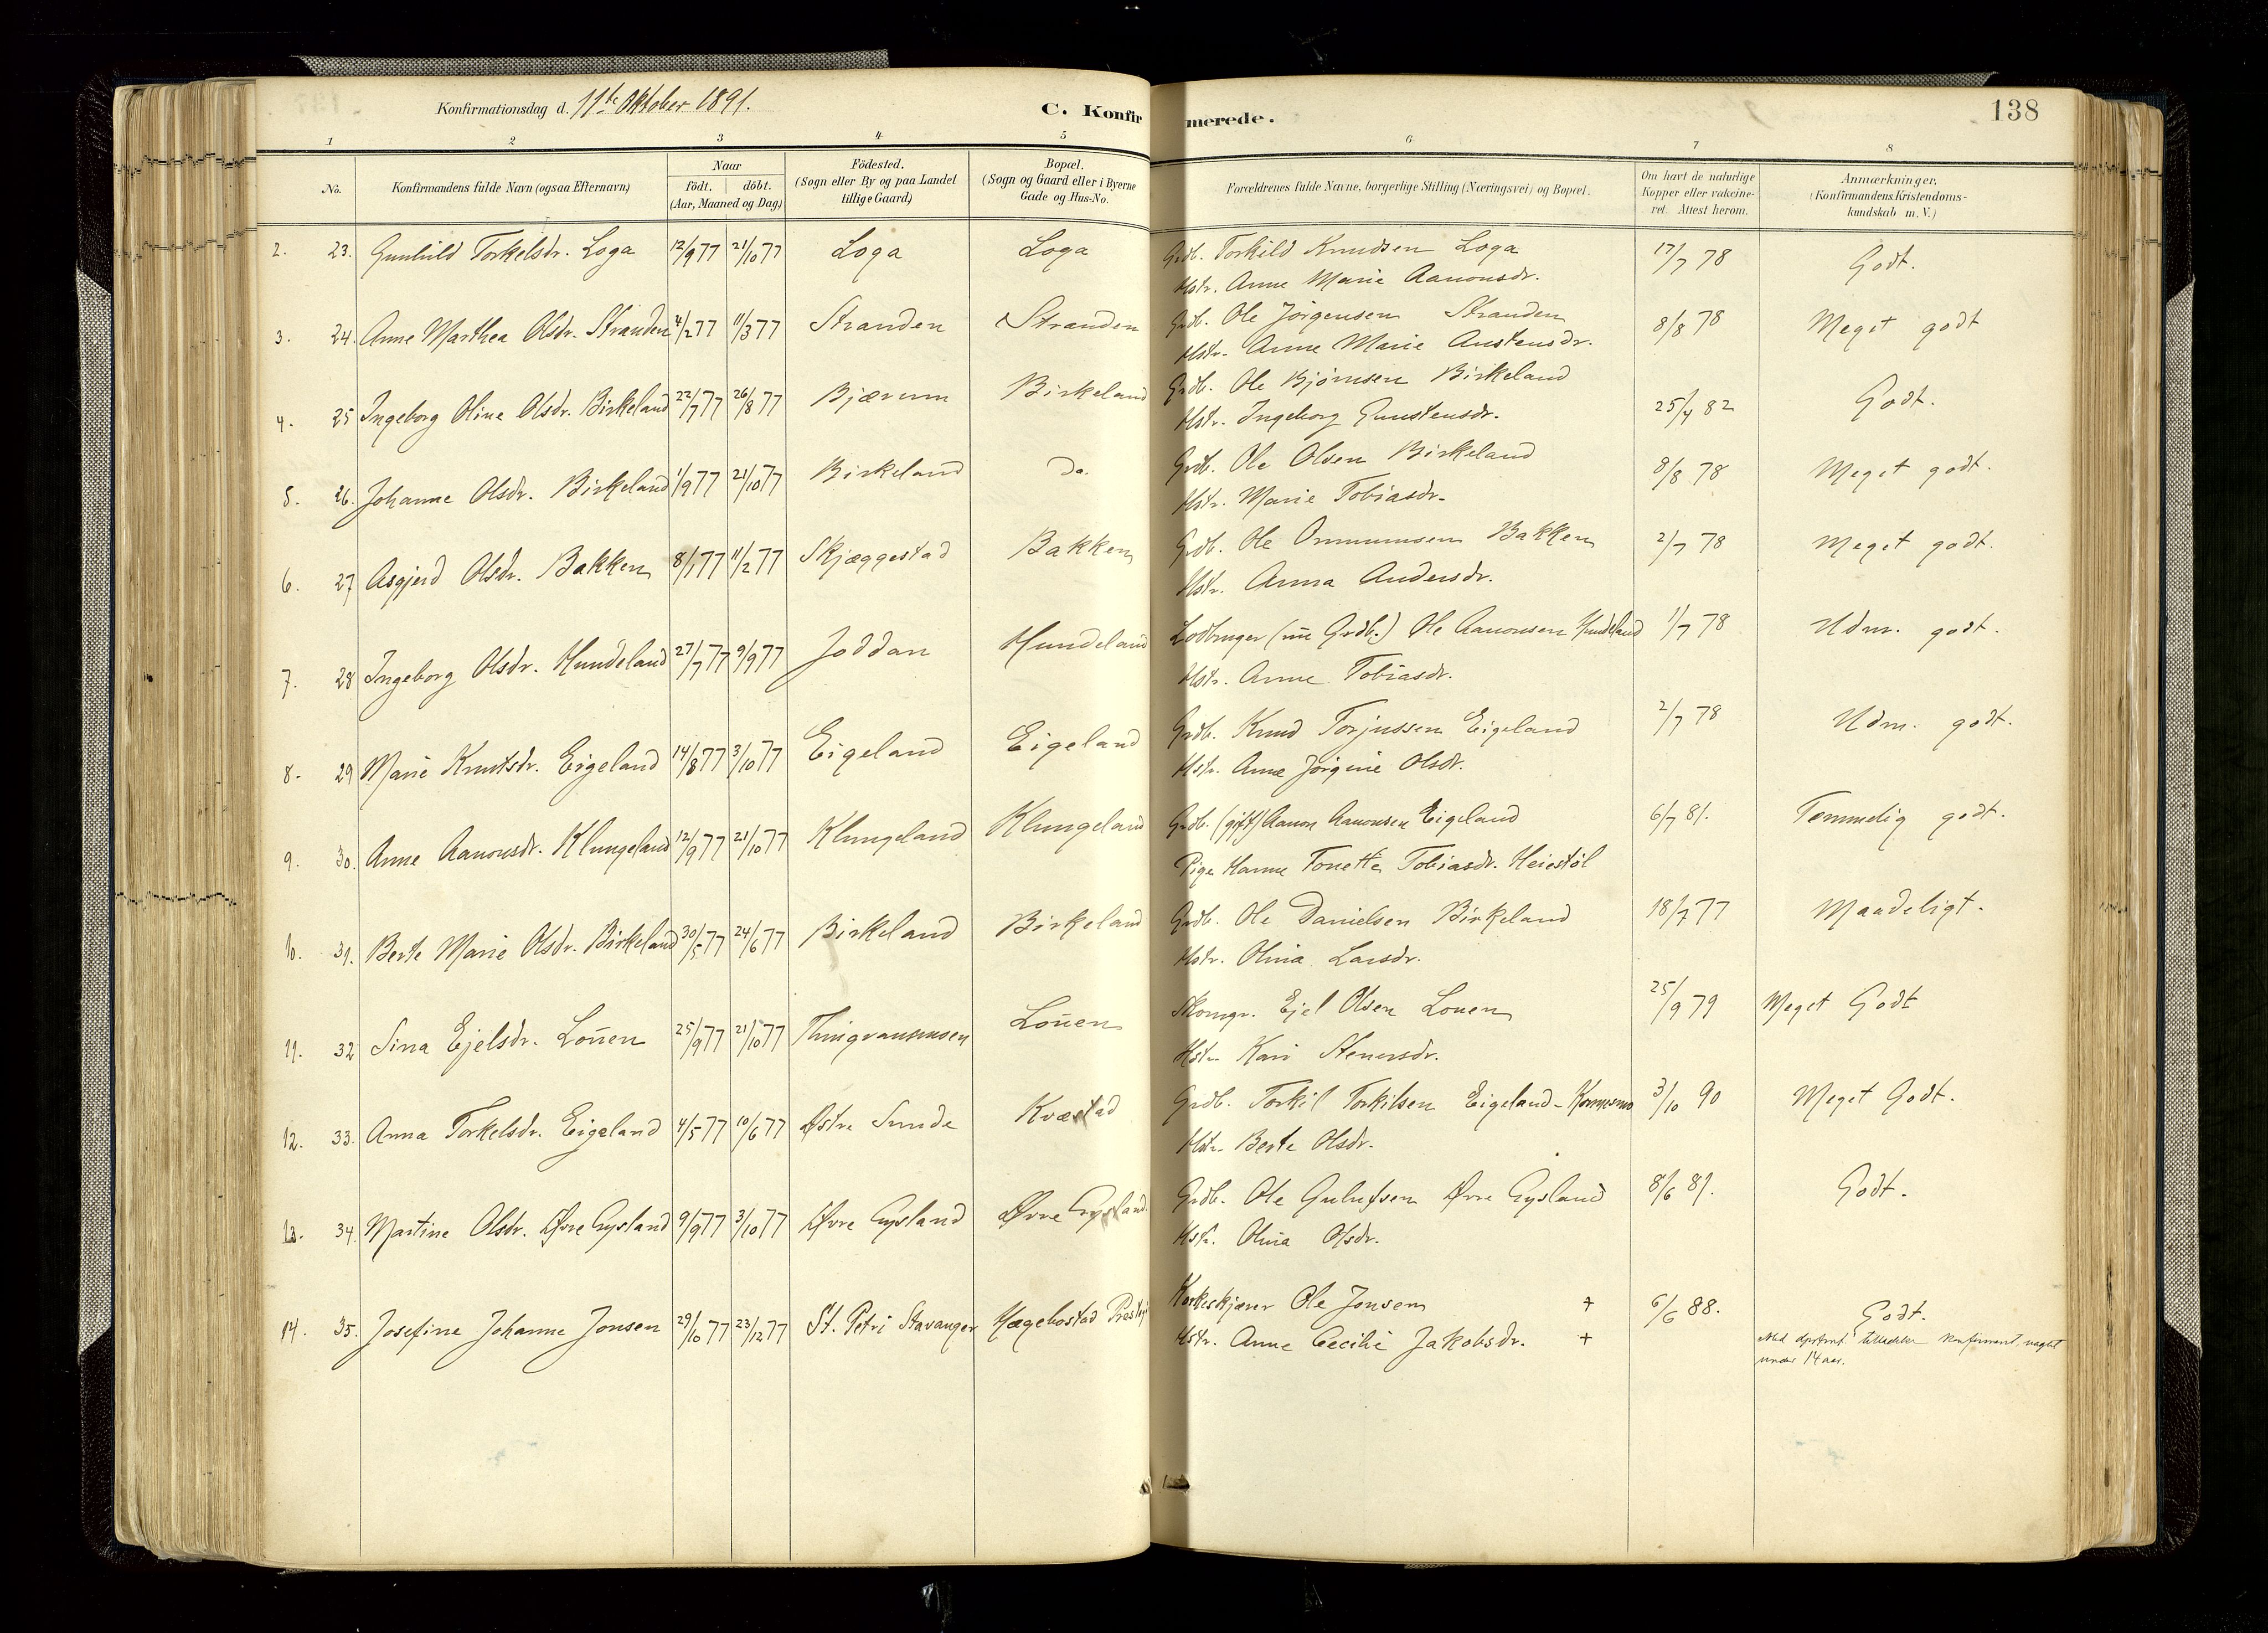 Konfirmationsdag d. 11te Oktober 1891. C. Konfirmerede. 138
1 2 3 4 5 6 7 8
No. Konfirmandens fulde Navn (ogsaa Efternavn) Naar født. døbt. (Aar, Maaned og Dag) Födested. (Sogn eller By og paa Landet tillige Gaard) Bopæl. (Sogn og Gaard eller i Byerne Gade og Hus-No. Forældrenes fulde Navne, borgerlige Stilling (Næringsvei) og Bopæl. Om havt de naturlige Kopper eller vakcineret. Attest herom. Anmærkninger. (Konfirmandens Kristendomskundskab m. V.)
2. 23. Gunhild Torkelsdr. Loga 12/9 77 21/10 77 Loga Loga Grdb. Torkild Knudsen Loga 17/7 78 Godt.
Hstr. Anne Marie Aanonsdr.
3. 24. Anne Marthea Olsdr. Stranden 4/2 77 11/3 77 Stranden Stranden Grdb. Ole Jörgensen Stranden 8/8 78 Meget godt
Hstr. Anne Marie Austensdr.
4. 25 Ingeborg Oline Olsdr. Birkeland 22/7 77 26/8 77 Bjærum Birkeland Grdb. Ole Bjørnsen Birkeland 25/4 82 Godt.
Hstr. Ingeborg Gunstensdr.
5. 26. Johanne Olsdr. Birkeland 1/9 77 21/10 77 Birkeland Do. Grdb. Ole Olsen Birkeland 8/8 78 Meget godt.
Hstr. Marie Tobiasdr.
6. 27 Asgjerd Olsdr. Bakken 8/1 77 11/2 77 Skjæggestad Bakken Grdb. Ole Ommunsen Bakken 2/7 78 Meget godt.
Hstr. Anna Andersdr.
7. 28 Ingeborg Olsdr. Hundeland 27/7 77 9/9 77 Joddan Hundeland Lodbruger (nu Grdb.) Ole Aanonsen Hundeland 1/7 78 Udm. godt.
Hstr. Anne Tobiasdr.
8. 29 Marie Knutsdr. Eigeland 14/8 77 3/10 77 Eigeland Eigeland Grdb. Knud Torjussen Eigeland 2/7 78 Udm. godt.
Hstr. Anne Jörgine Olsdr.
9. 30. Anne Aanonsdr. Klungeland 12/9 77 21/10 77 Klungeland Klungeland Grdb. (gift) Aanon Aanonsen Eigeland 6/7 81. Temmelig godt.
Pige Hanne Tonette Tobiasdr. Heiestöl
10. 31. Berte Marie Olsdr. Birkeland 30/5 77 24/6 77 Birkeland Birkeland Grdb. Ole Danielsen Birkeland 18/7 77 Maadeligt.
Hstr. Olina Larsdr.
11. 32 Sina Ejelsdr. Louen 25/9 77 21/10 77 Louen Skomgr. Ejel Olsen Louen 25/9 79 Meget Godt
Hstr. Kari Stenersdr.
12. 33. Anna Torkelsdr. Eigeland 4/5 77 10/6 77 Østre Sunde Kvæstad Grdb. Torkil Torkilsen Eigeland- 3/10 90 Meget Godt.
Hstr. Berte Olsdr.
13. 34. Martine Olsdr. Øvre Eysland 9/9 77 3/10 77 Øvre Eysland Øvre Eysland Grdb. Ole Øvre Eysland 8/6 81. Godt.
Hstr. Olina Olsdr.
14. 35. Josefine Johanne Jonsen 29/10 77 23/12 77 St. Petri Stavanger Hægebostad Præsteg. Korkeskjærer Ole Jonsen + 6/6 88. Godt.
Hstr. Anne Cecilie Jakobsdr. + Med tilladelse konfirmeret, noget
under 14 aar.